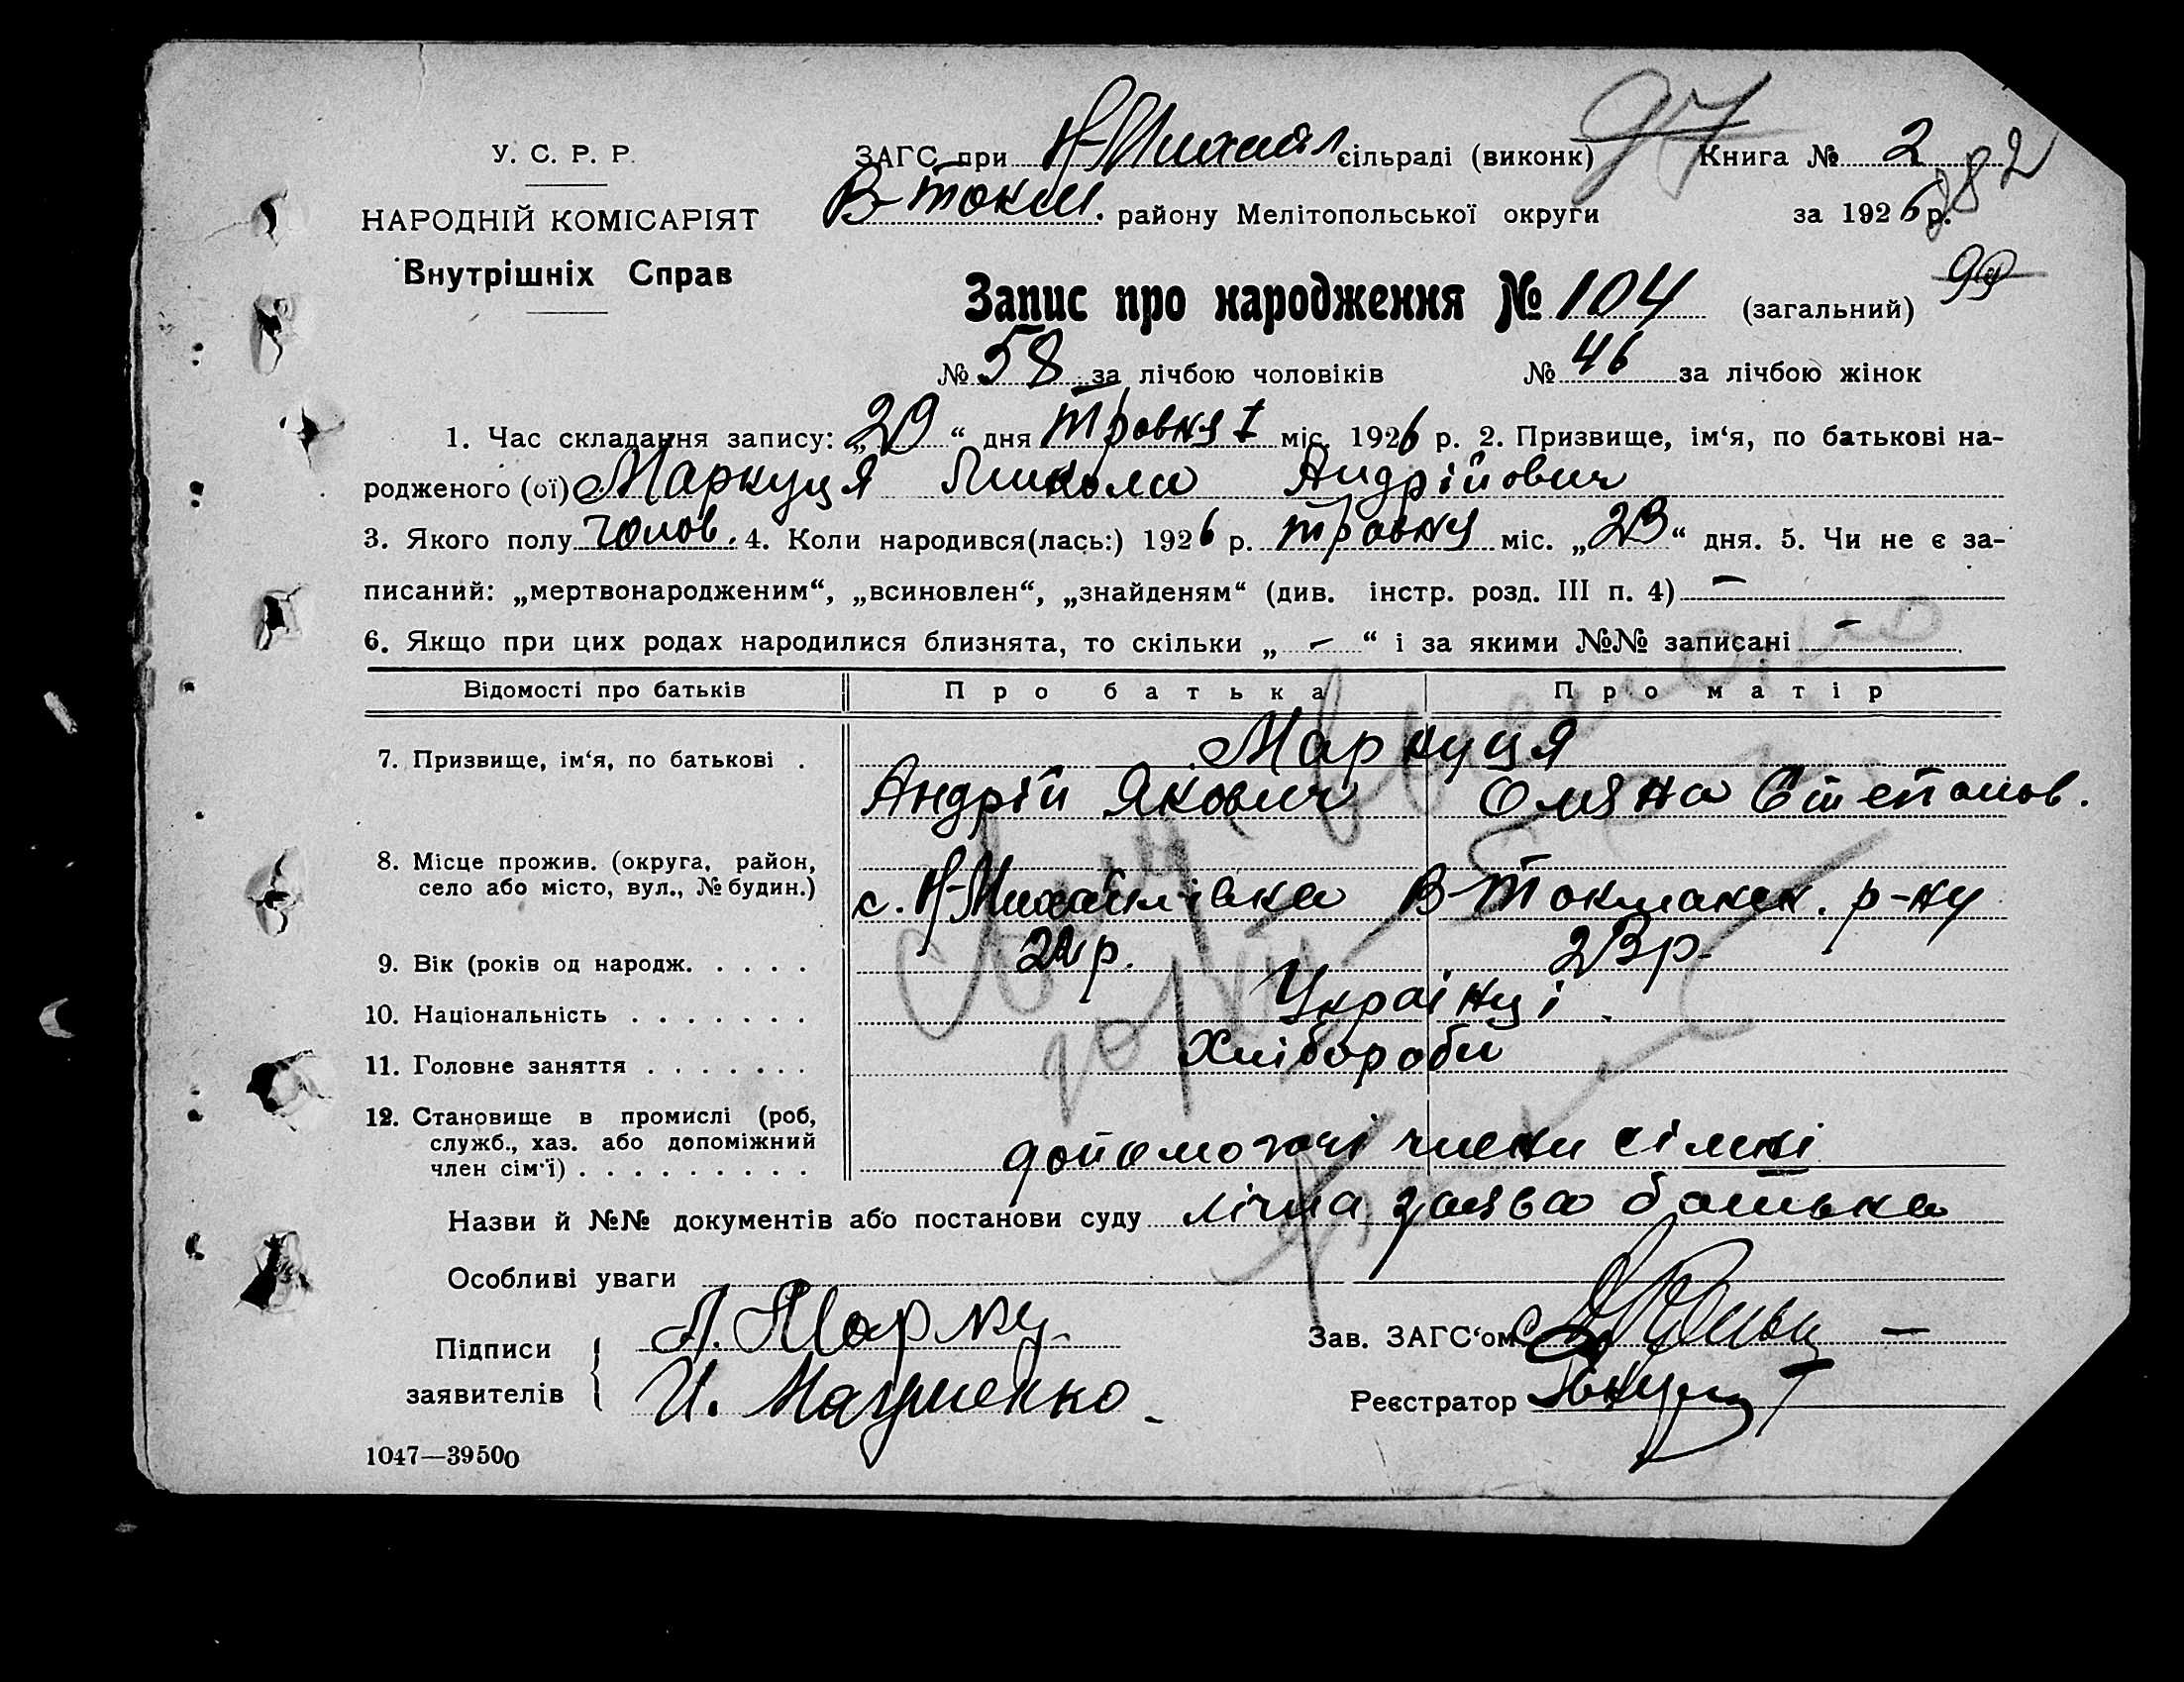 97
У. С. Р. Р.
ЗАГС при Н-Михайл сільраді (виконк) Книга № 2
82
НАРОДНІЙ КОМІСАРІЯТ
В-Токм. району Мелітопольської округи за 1926 р.
Внутрішніх Справ
Запис про народження № 104 (загальний)
99
№ 58 за лічбою чоловіків № 46 за лічбою жінок
1. Час складання запису: „29“ дня травня міс. 1926 р. 2. Призвище, ім‘я, по батькові на-
родженого (ої) Маркуця Микола Андрійович
3. Якого полу чолов. 4. Коли народився(лась:) 1926 р. травня міс. „23“ дня. 5. Чи не є за-
писаний: „мертвонародженим“, „всиновлен“, „знайденям“ (див. інстр. розд. III п. 4) —
6. Якщо при цих родах народилися близнята, то скільки „ — “ і за якими №№ записані —
Відомості про батьків Про батька Про матір
7. Призвище, ім‘я, по батькові . Маркуця
Андрій Якович Оляна Степанов.
8. Місце прожив. (округа, район,
село або місто, вул., № будин.) с. Н-Михайлівка В-Токмакск. р-ну
9. Вік (років од народж. . . . . 22 р. 23 р.
10. Національність . . . . . . . Українці
11. Головне заняття . . . . . . . Хлібороби
12. Становище в промислі (роб,
служб., хаз. або допоміжний
член сім‘ї) . . . . . . . . . допомогачі члени сімпі
Назви й №№ документів або постанови суду лічна заява батька
Особливі уваги
Підписи А. Марку Зав. ЗАГС‘ом
заявителів И. Мациенко Реєстратор
1047—39500